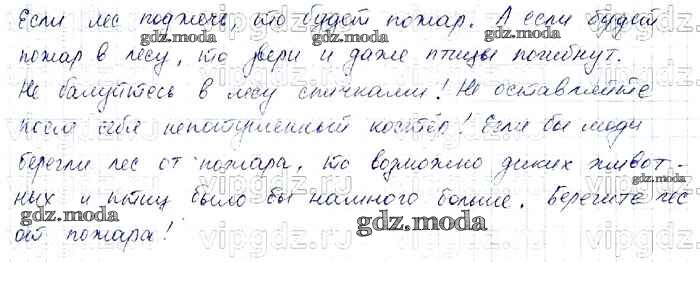 Если лес поджечь, то будет пожар. А если будет
пожар в лесу, то звери и даже птицы погибнут.
Не балуйтесь в лесу спичками! Не оставляйте
после себя непотушенный костёр! Если бы люди
берегли лес от пожара, то возможно диких живот-
ных и птиц было бы намного больше. Берегите лес
от пожара!
gdz.moda
vipgdz.ru